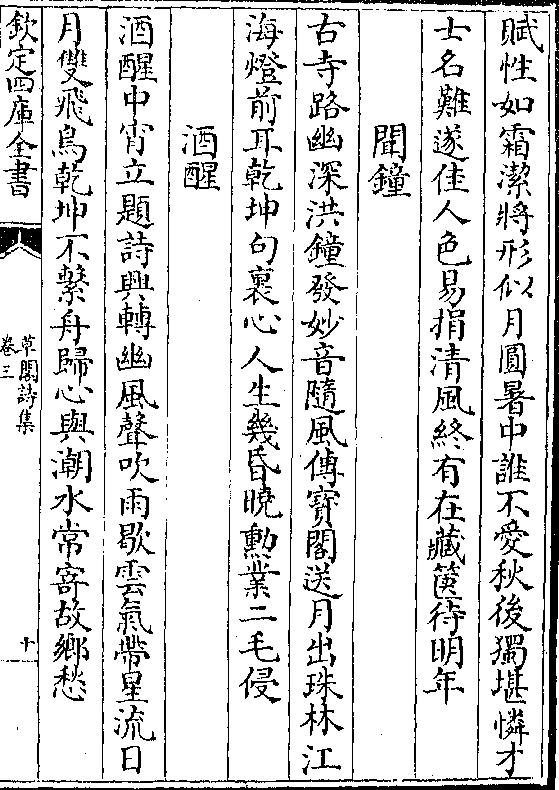 賦性如霜潔將形似月圓暑中誰不愛秋後獨堪憐才
士名難遂佳人色易捐清風終有在藏篋待明年
聞鐘
古寺路幽深洪鐘發妙音隨風傳寳閣送月出珠林江
海燈前耳乾坤句裏心人生幾昏曉勲業二毛侵
酒醒
酒醒中宵立題詩興轉幽風聲吹雨歇雲氣帶星流日
月雙飛鳥乾坤一不繫舟歸心與潮水常寄故鄉愁
欽定四庫全書
草閣詩集
卷三
十